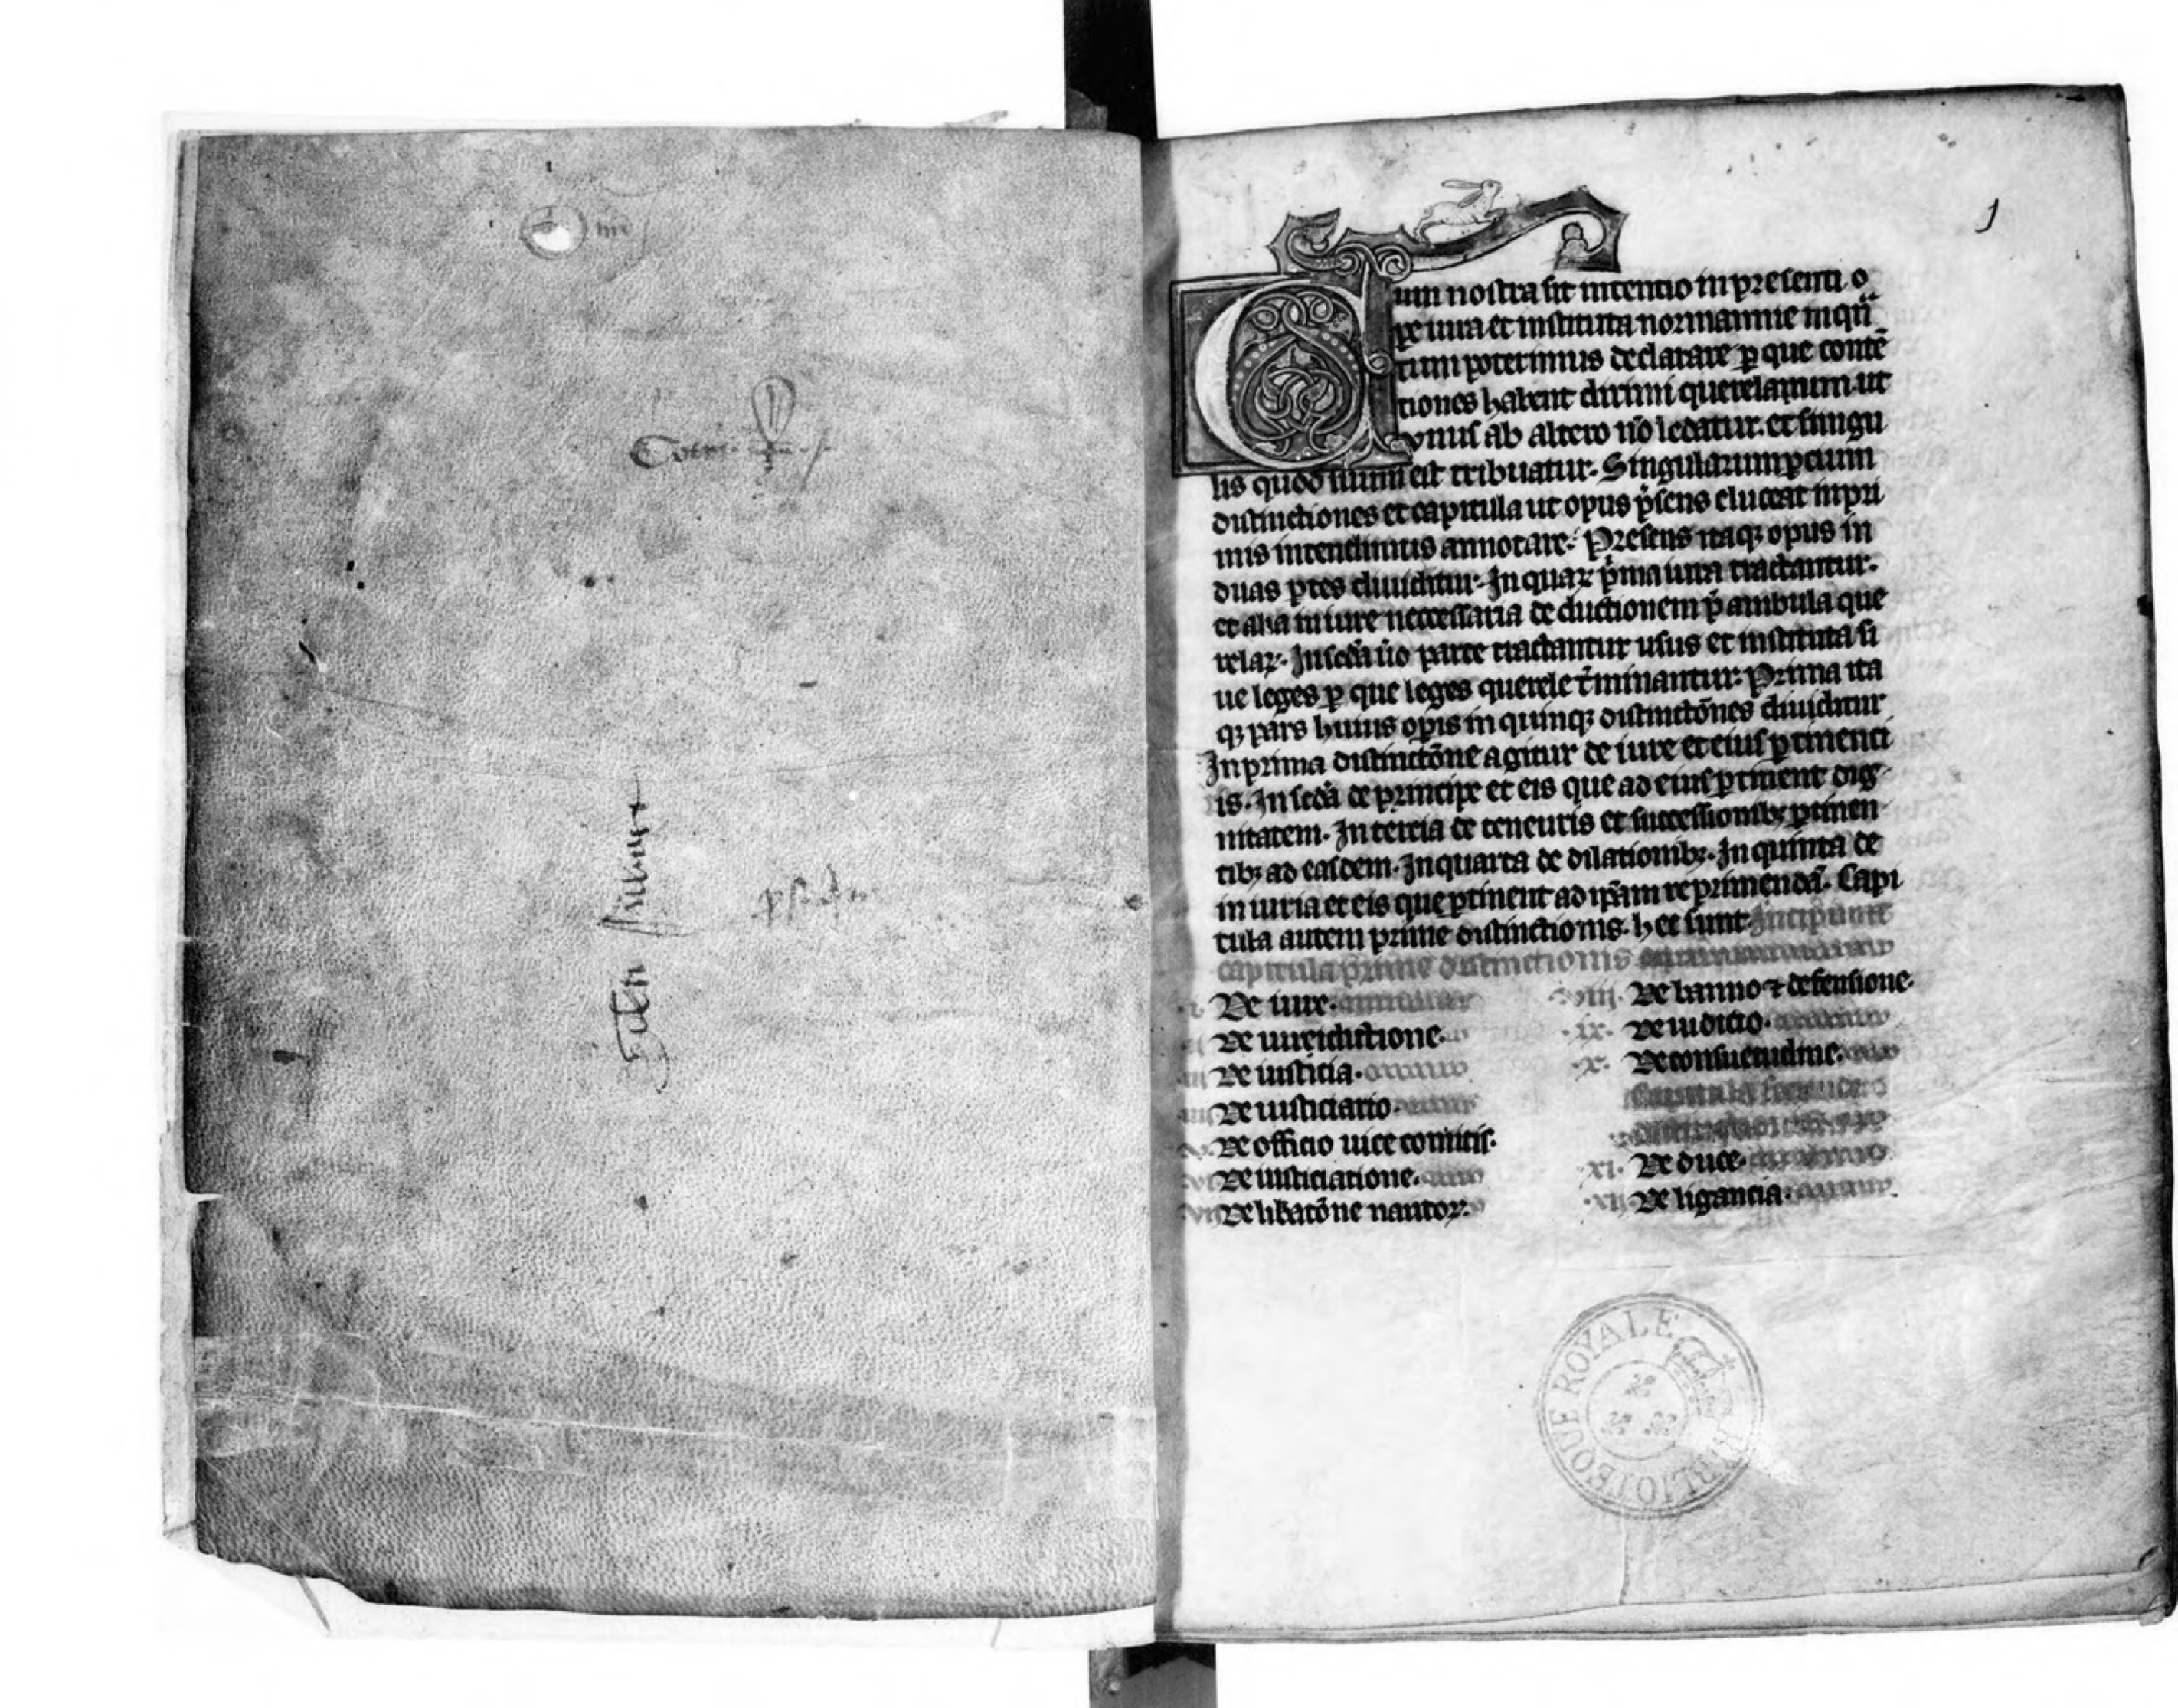 1
Cum nostra sit intentio in presenti o
pe iura et instituta normannie in qn̄
tum poterimus declarare ꝑ que contē
tiones habent dirimi querelarum. ut
vnus ab altero nō ledatur. et singu
lis quod suum est tribuatur. Singularum ꝑcium
distinctiones et capitula ut opus p̄sens eluceat inpri
mis intendimus annotare. Presens itaqꝫ opus in
duas ꝑtes diuiditur. In quaꝝ p̄ma iura tractantur.
et alia in iure neccessaria de ductionem p̄ ambula que
relaꝝ. In scd̄a ūo parte tractantur usus et instituta si
ue leges ꝑ que leges querele t̄minantur. Prima ita
qꝫ pars huius oꝑis in quinqꝫ distinctōnes diuiditur
In prima distinctōne agitur de iure et eius ꝑtinenci
is. In scd̄a de principe et eis que ad eius ꝑtinent dig
nitatem. In tercia de teneuris et successionibꝫ ꝑtinen
tibꝫ ad easdem. In quarta de dilationibꝫ. In quinta de
iniuria et eis que ꝑtinent ad ip̄am reprimendā. Capi
tula autem prime distinctionis. hec sunt. Incipiunt
capitula prime distinctionis
i. De iure.
ii. De iureidictione.
iii. De iusticia.
iiii. De iusticiario.
v. De officio uice comitis.
vi. De iusticiatione.
vii. De lib̄atōne nantoꝝ.
viii. De banno ⁊ defensione.
ix. De iudicio.
x. De consuetudine.
Capitula secunde
distinctionis
xi. De duce.
xii. De ligancia.
BIBLIOTEQUE ROYALE